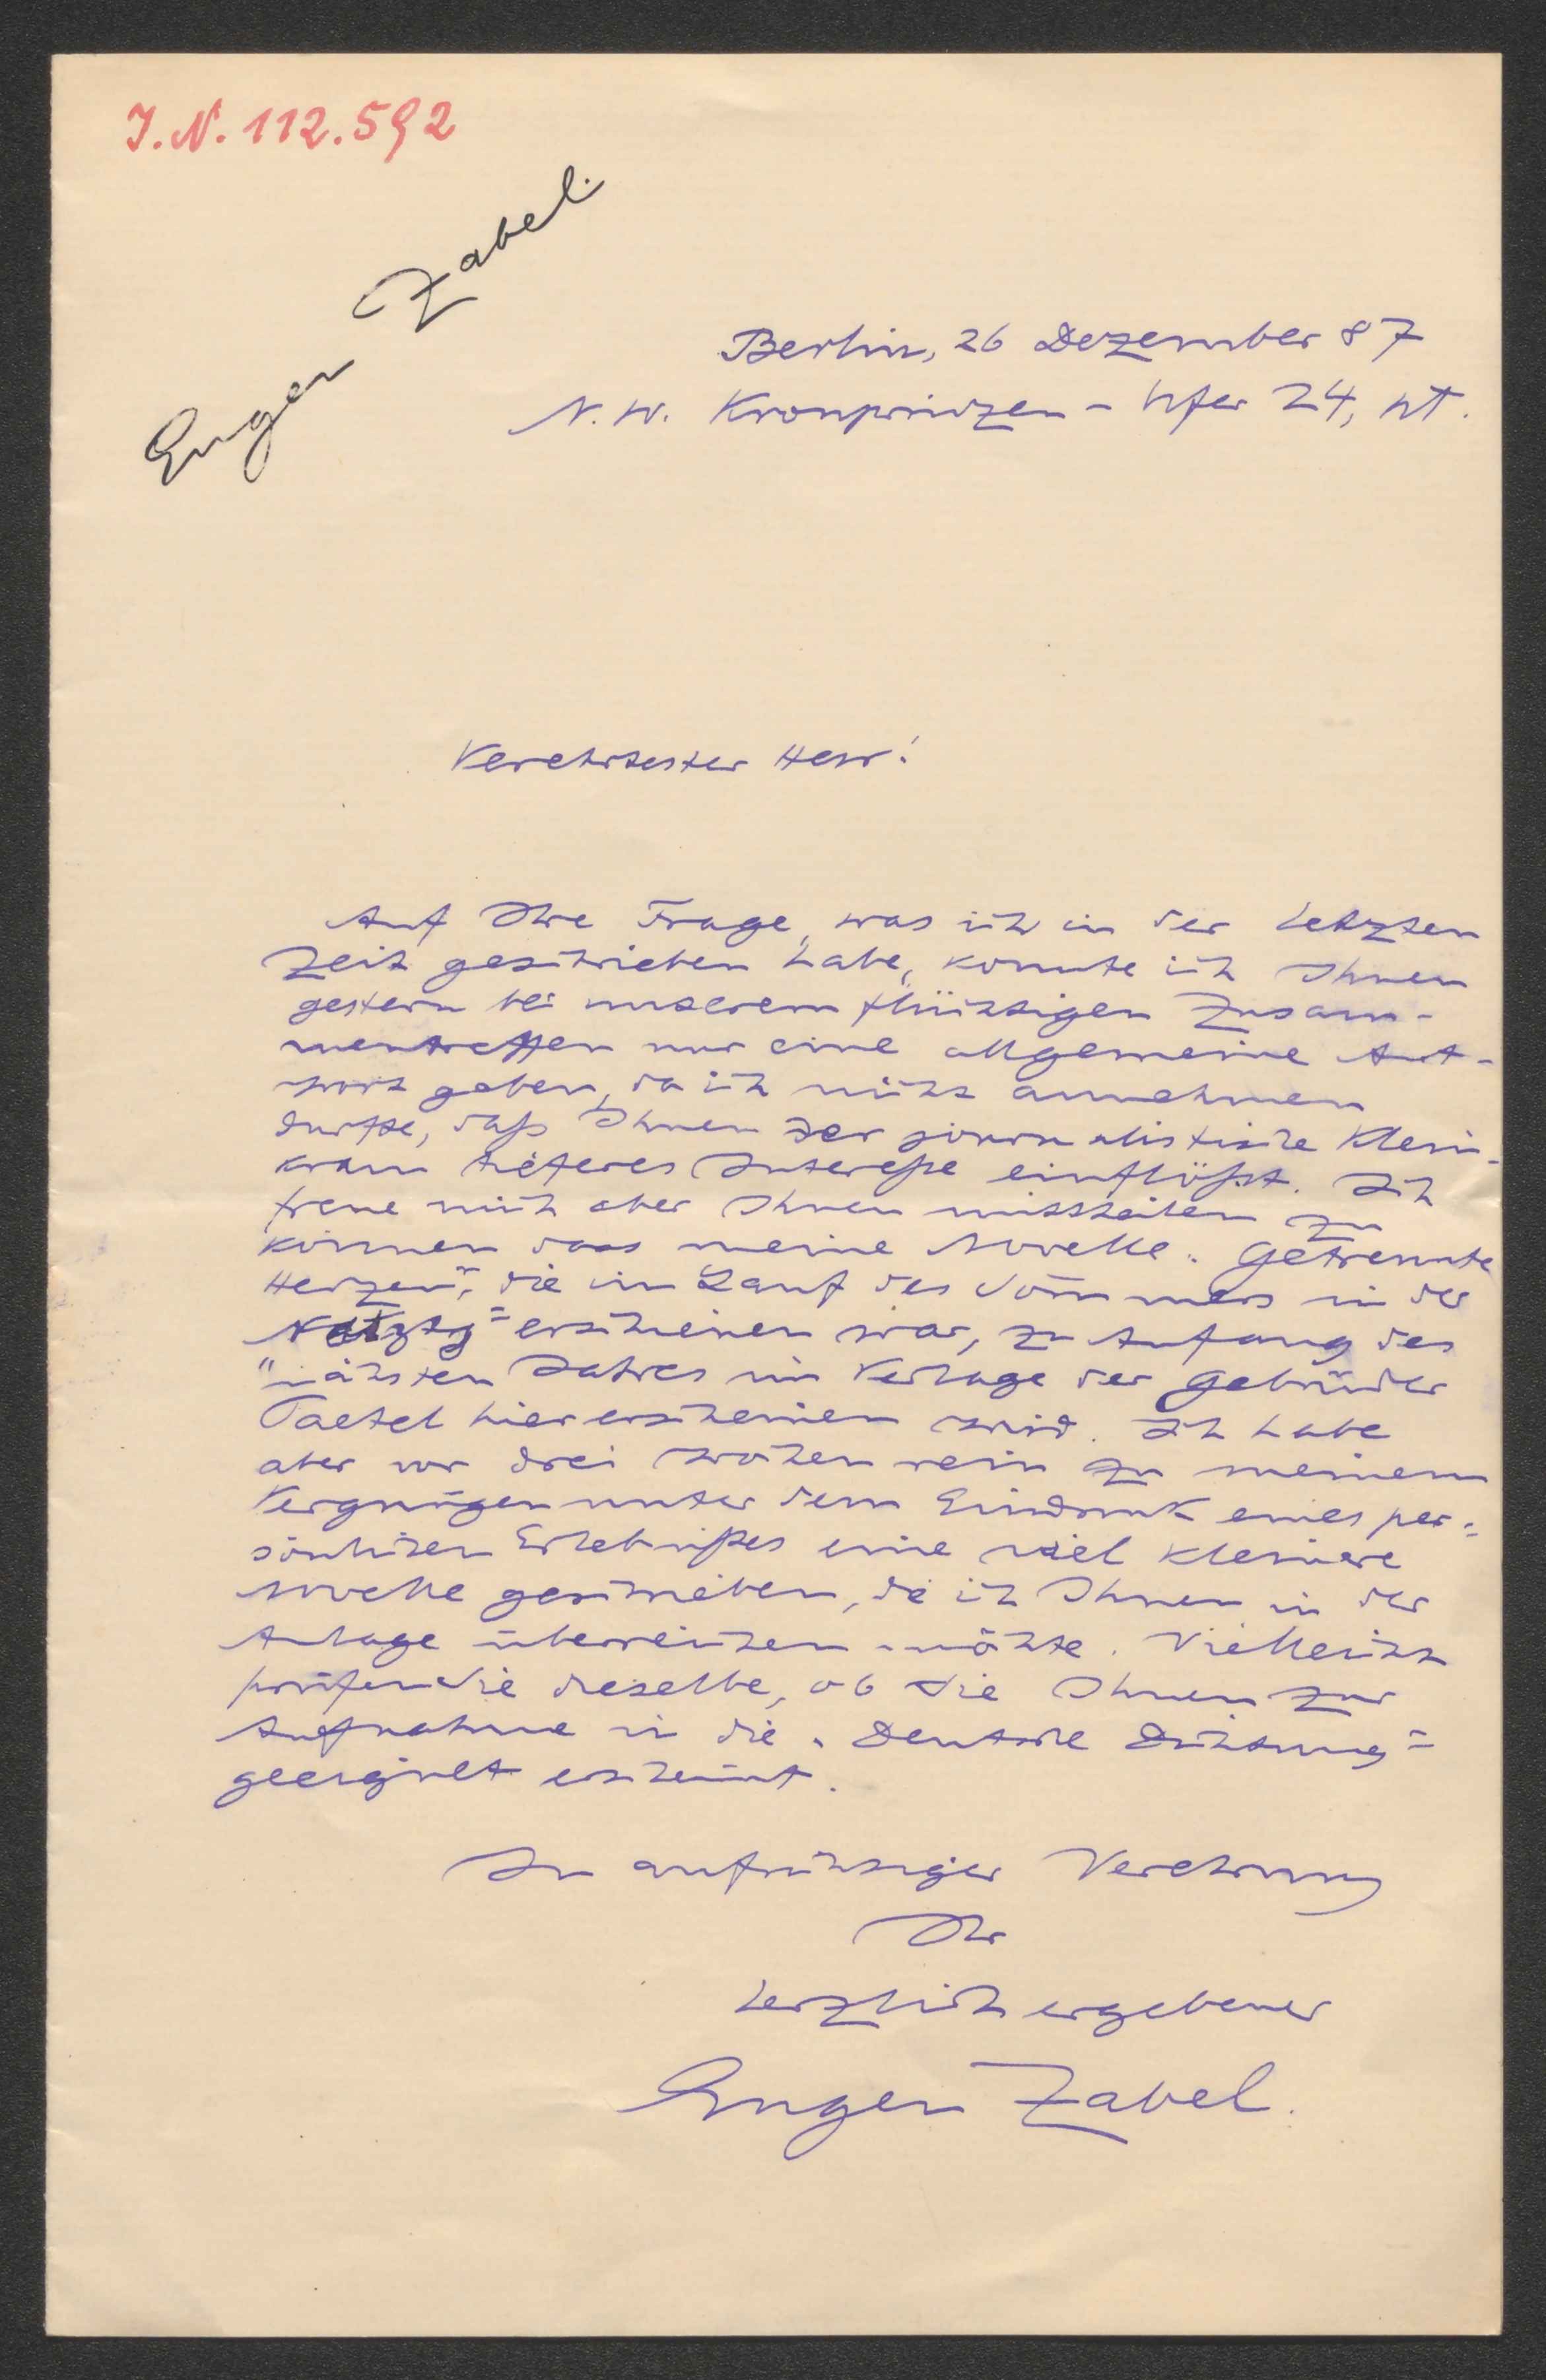 I.N. 112.592
Eugen Zabel.
Berlin, 26 Dezember 87
N.W. Kronprinzen-Ufer 24, pt.
Verehrtester Herr!
Auf Ihre Frage, was ich in der letzten
Zeit geschrieben habe, konnte ich Ihnen
gestern bei unserem flüchtigen Zusam-
mentreffen nur eine allgemeine Ant-
wort geben, da ich nicht annehmen
durfte, daß Ihnen der journalistische Klein-
kram tieferes Interesse einflößt. Ich
freue mich aber Ihnen mittheilen zu
können dass meine Novelle „Getrennte
Herzen", die im Lauf des Sommers in der
„Natztg" erschienen war, zu Anfang des
nächsten Jahres im Verlage der Gebrüder
Paetel hier erscheinen wird. Ich habe
aber vor drei Wochen rein zu meinem
Vergnügen unter dem Eindruck eines per-
sönlichen Erlebnißes eine viel kleinere
Novelle geschrieben, die ich Ihnen in der
Anlage überreichen möchte. Vielleicht
prüfen Sie dieselbe, ob sie Ihnen zur
Aufnahme in die „Deutsche Dichtung"
geeignet erscheint.
In aufrichtiger Verehrung
Ihr
herzlich ergebener
Eugen Zabel.